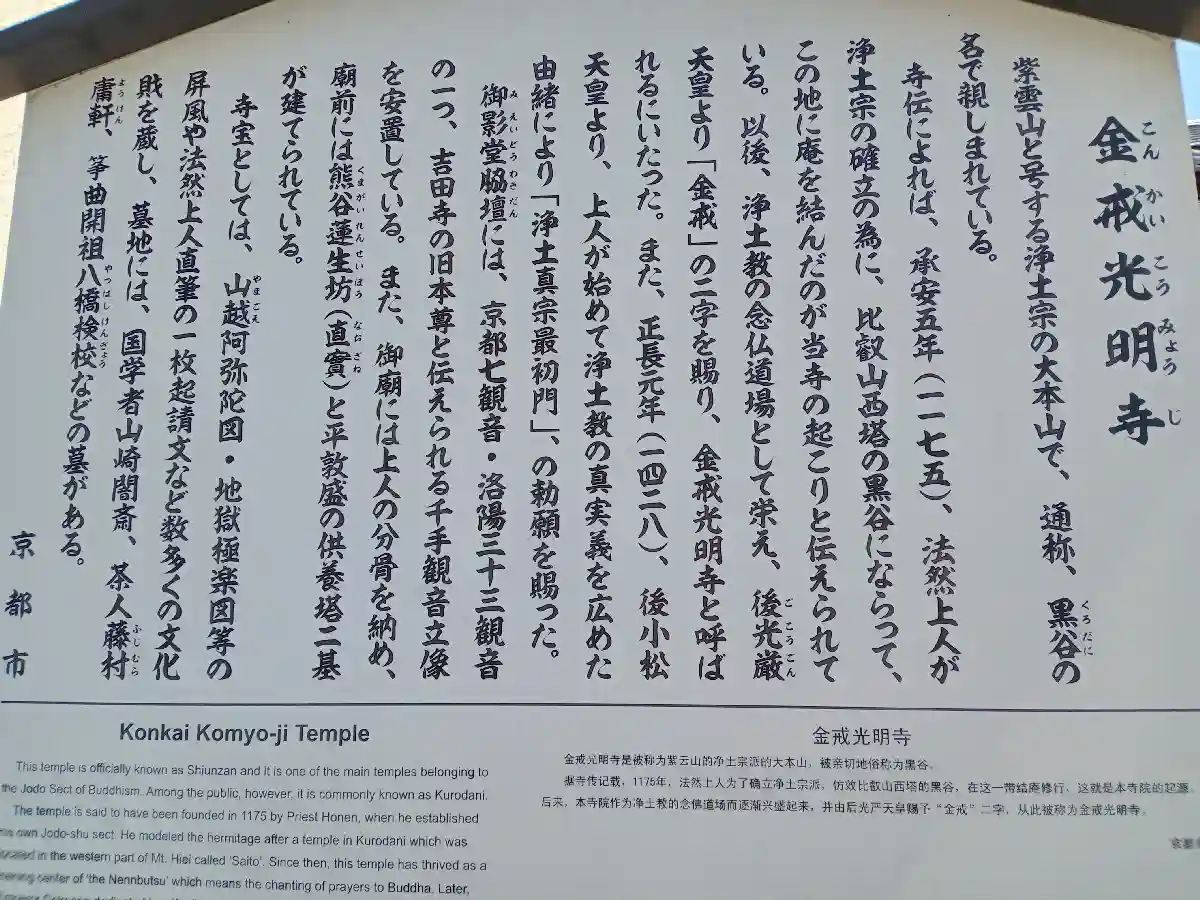 金戒光明寺
こんかいこうみょうじ
紫雲山と号する浄土宗の大本山で、通称、黒谷の
くろだに
名で親しまれている。
寺伝によれば、承安五年(一一七五)、法然上人が
浄土宗の確立の為に、比叡山西塔の黒谷にならって、
この地に庵を結んだのが当寺の起こりと伝えられて
いる。以後、浄土教の念仏道場として栄え、後光厳
ごこうごん
天皇より「金戒」の二字を賜り、金戒光明寺と呼ば
れるにいたった。また、正長元年(一四二八)、後小松
天皇より、上人が始めて浄土教の真実義を広めた
由緒により「浄土真宗最初門」、の勅願を賜った。
御影堂脇壇には、京都七観音・洛陽三十三観音
みえいどうわきだん
の一つ、吉田寺の旧本尊と伝えられる千手観音立像
を安置している。また、御廟には上人の分骨を納め、
廟前には熊谷蓮生坊(直實)と平敦盛の供養塔二基
くまがいれんせいぼう なおざね
が建てられている。
寺宝としては、山越阿弥陀図・地獄極楽図等の
やまごえ
屏風や法然上人直筆の一枚起請文など数多くの文化
財を蔵し、墓地には、国学者山崎闇斎、茶人藤村
ふじむら
庸軒、箏曲開祖八橋検校などの墓がある。
ようけん やつはしけんぎょう
京都市
Konkai Komyo-ji Temple
This temple is officially known as Shiunzan and it is one of the main temples belonging to
the Jodo Sect of Buddhism. Among the public, however, it is commonly known as Kurodani.
The temple is said to have been founded in 1175 by Priest Honen, when he established
his own Jodo-shu sect. He modeled the hermitage after a temple in Kurodani which was
located in the western part of Mt. Hiei called 'Saito'. Since then, this temple has thrived as a
center of 'the Nennbutsu' which means the chanting of prayers to Buddha. Later,
金戒光明寺
金戒光明寺是被称为紫云山的净土宗派的大本山,被亲切地俗称为黑谷。
据寺传记载,1175年,法然上人为了确立净土宗派,仿效比叡山西塔的黑谷,在这一带结庵修行,这就是本寺院的起源。
后来,本寺院作为净土教的念佛道场而逐渐兴盛起来,并由后光严天皇赐予“金戒”二字,从此被称为金戒光明寺。
京都